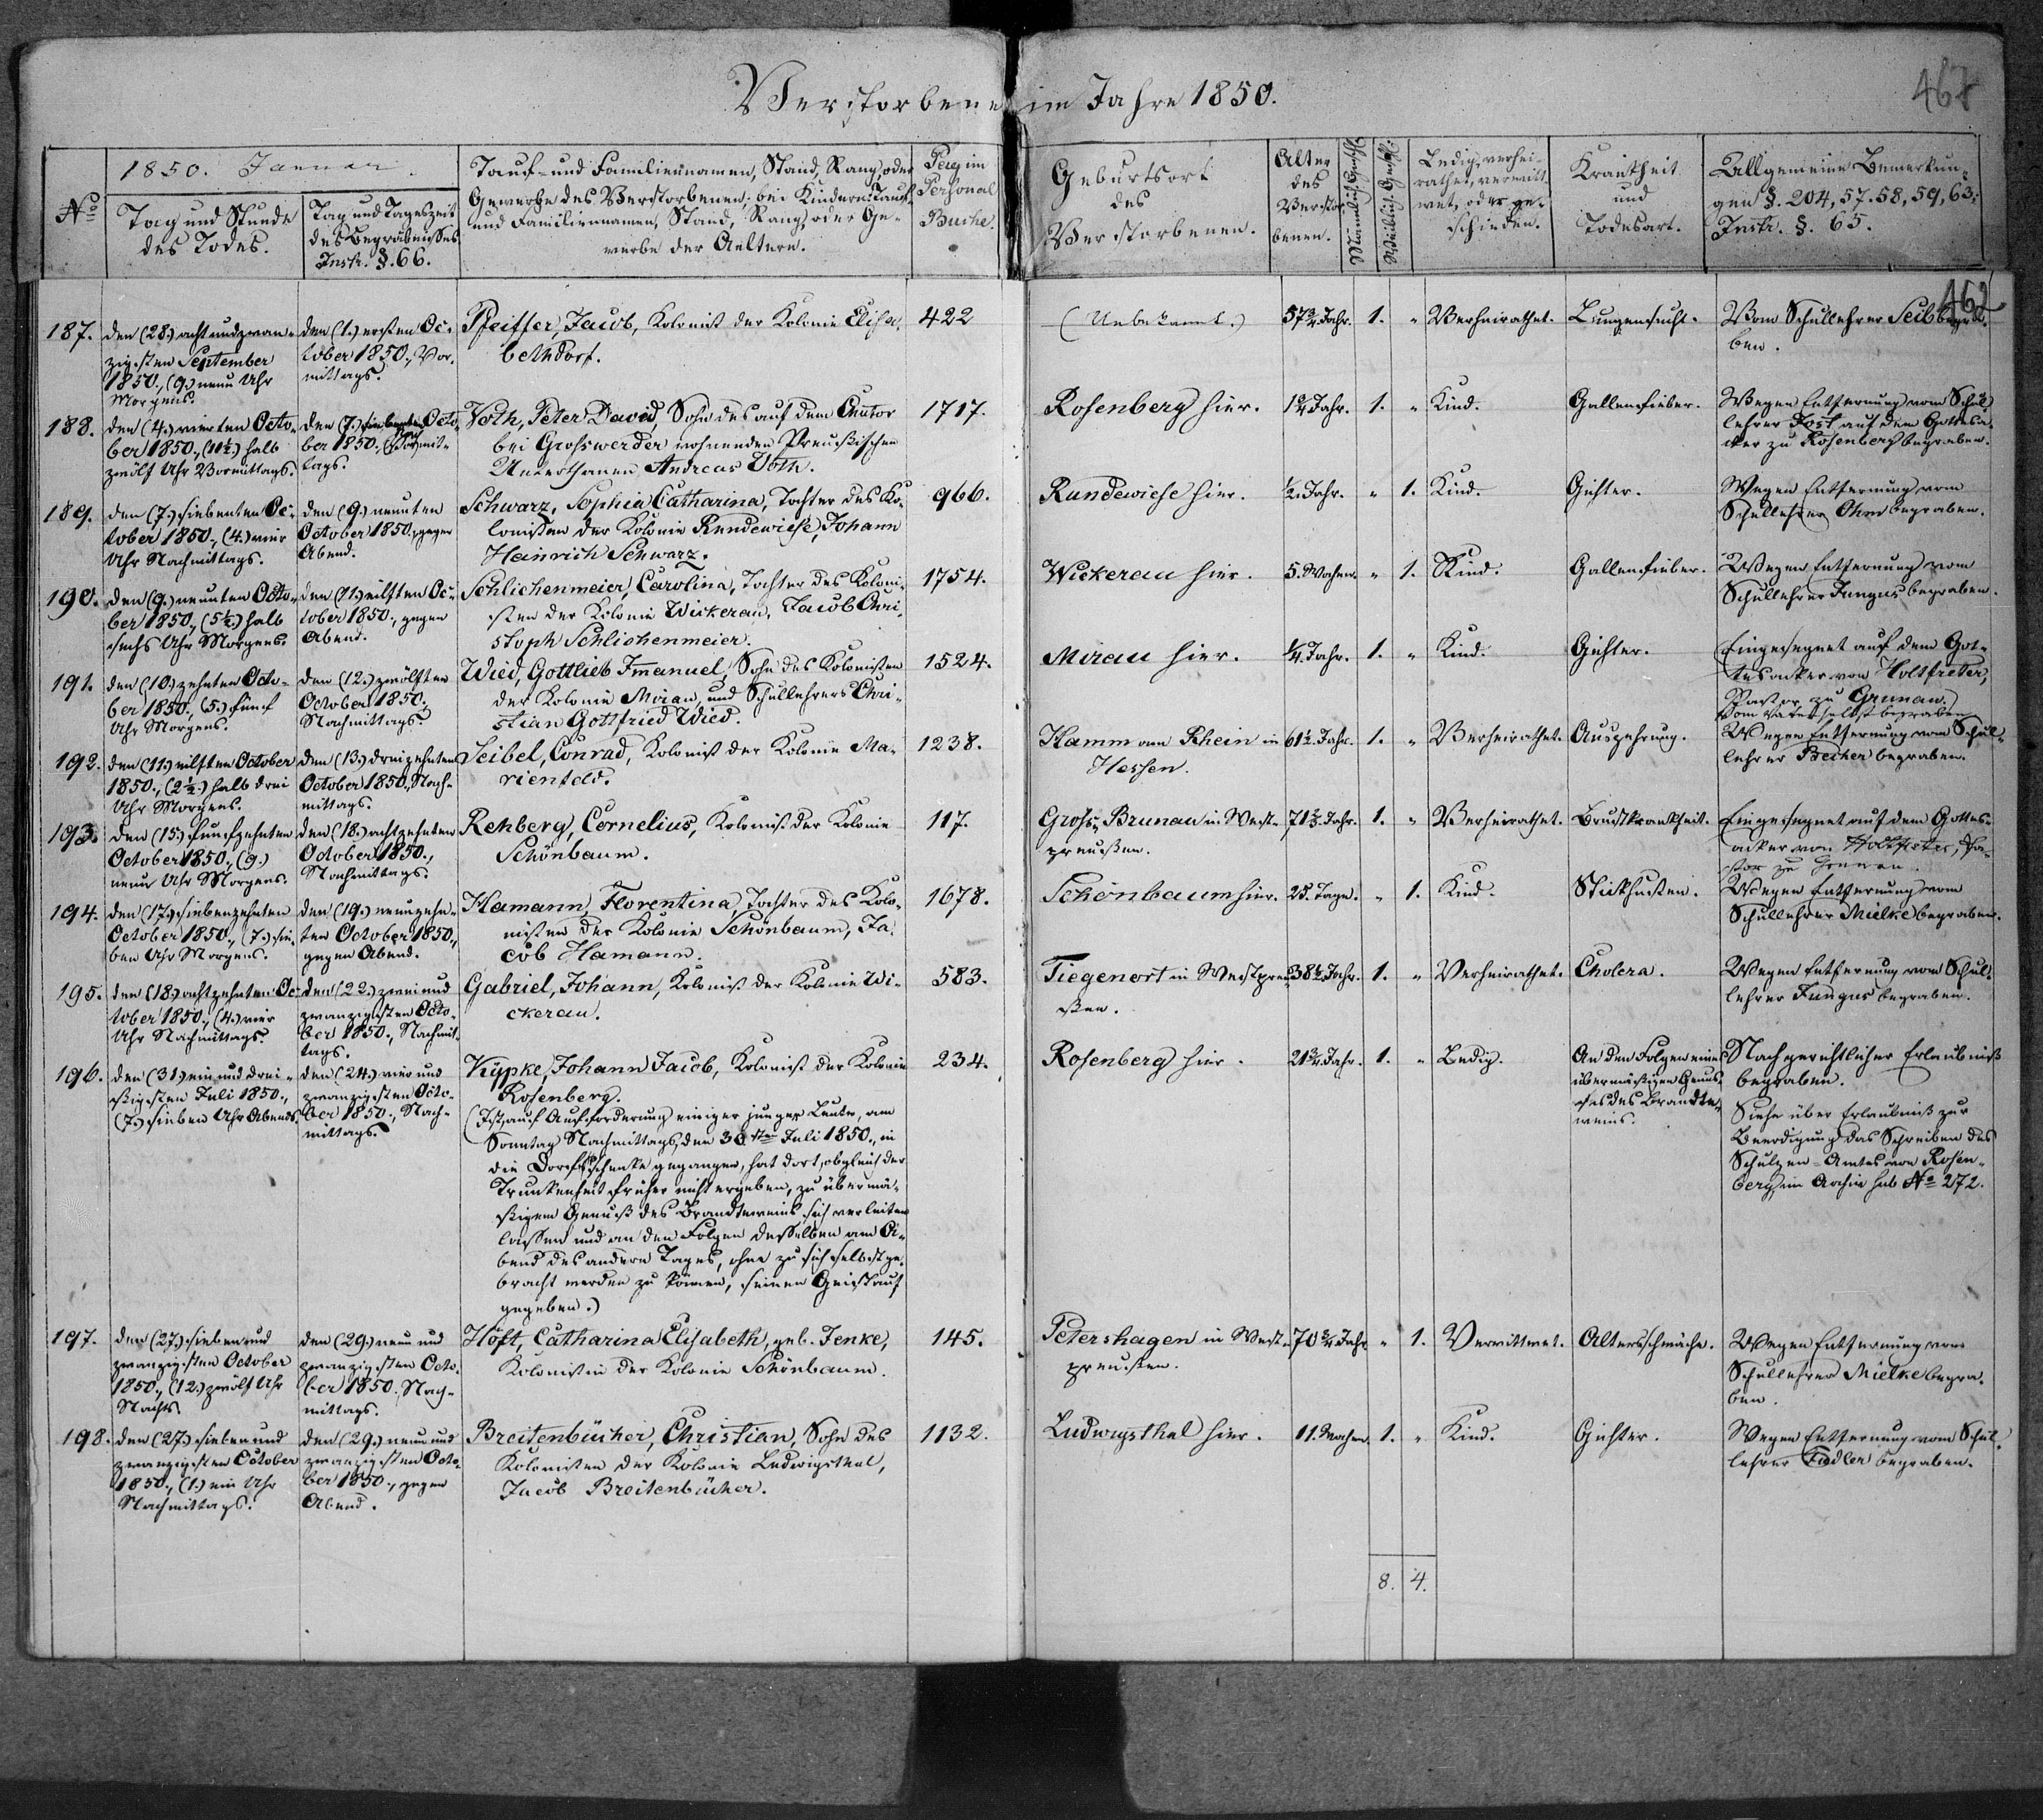 Verstorbene im Jahre 1850.
467
No
1850. Januar.
Tag und Stunde
des Todes.
Tag und Tageszeit
des Begräbnisses
Instr. §. 66.
Tauf- und Familiennamen, Stand, Rang oder
Gewerbe des Verstorbenen; bei Kindern Tauf-
und Familiennamen, Stand, Rang oder Ge-
werbe der Aeltern.
Pag im
Personal
Buche.
Geburtsort
des
Verstorbenen.
Alter
des
Verstor-
benen.
Männlich. Geschl.
Weiblich. Geschl.
Ledig, verhei-
rathet, verwitt-
wet, oder ge-
schieden.
Krankheit
und
Todesart.
Allgemeine Bemerkun-
gen §. 204, 57. 58, 59, 63;
Instr. §. 65.
462
187.
den (28.) acht und zwan-
zigsten September
1850., (9.) neun Uhr
Morgens.
den (1.) ersten Oc-
tober 1850., Vor-
mittags.
Pfeiffer, Jacob, Kolonist der Kolonie Elisa-
bethdorf.
422
(Unbekannt.)
57¾ Jahr.
1.
"
Verheirathet.
Lungensucht.
Vom Schullehrer Seib begra-
ben.
188.
den (4.) vierten Octo-
ber 1850., (11½.) halb
zwölf Uhr Vormittags.
den (7.) siebenten Octo-
ber 1850.,
tags.
Voth, Peter David, Sohn des auf dem Chutor
bei Grosswerder wohnenden Preußischen
Unterthanen Andreas Voth.
1717.
Rosenberg hier.
Jahr.
1.
"
Kind.
Gallenfieber.
Wegen Entfernung vom Schul-
lehrer Jost auf dem Gottesa-
cker zu Rosenberg begraben.
189.
den (7.) siebenten Oc-
tober 1850., (4.) vier
Uhr Nachmittags.
den (9.) neunten
October 1850., gegen
Abend.
Schwarz, Sophia Catharina, Tochter des Ko-
lonisten der Kolonie Rundewiese, Johann
Heinrich Schwarz.
966.
Rundewiese hier.
½ Jahr.
"
1.
Kind.
Gichter.
Wegen Entfernung vom
Schullehrer Ohm begraben.
190.
den (9.) neunten Octo-
ber 1850., (5½.) halb
sechs Uhr Morgens.
den (11.) eilften Oc-
tober 1850., gegen
Abend.
Schlichenmeier, Carolina, Tochter des Koloni-
sten der Kolonie Wickerau, Jacob Chri-
stoph Schlichenmeier.
1754.
Wickerau hier.
5. Wochen.
"
1.
Kind.
Gallenfieber.
Wegen Entfernung vom
Schullehrer Jungus begraben.
191.
den (10.) zehnten Octo-
ber 1850., (5.) fünf
Uhr Morgens.
den (12.) zwölften
October 1850.,
Nachmittags.
Wied, Gottlieb Imanuel, Sohn des Kolonisten
der Kolonie Mirau, und Schullehrers Chri-
stian Gottfried Wied.
1524.
Mirau hier.
¼ Jahr.
1.
"
Kind.
Gichter.
Eingesegnet auf dem Got-
tesacker von Holtfreter,
Pastor zu Grunau.
Vom Vater selbst begraben.
192.
den (11.) eilften October
1850., (2½.) halb drei
Uhr Morgens.
den (13.) dreizehnten
October 1850., Nach-
mittags.
Seibel, Conrad, Kolonist der Kolonie Ma-
rienfeld.
1238.
Hamm am Rhein in
Hessen.
61½ Jahr.
1.
"
Verheirathet.
Auszehrung.
Wegen Entfernung vom Schul-
lehrer Becker begraben.
193.
den (15.) funfzehnten
October 1850., (9.)
neun Uhr Morgens.
den (18.) achtzehnten
October 1850.,
Nachmittags.
Rehberg, Cornelius, Kolonist der Kolonie
Schönbaum.
117.
Gross Brunau in West-
preußen.
Jahr.
1.
"
Verheirathet.
Brustkrankheit.
Eingesegnet auf dem Gottes-
acker von Holtfreter, Pa-
stor zu Grunau.
194.
den (17.) siebenzehnten
October 1850., (7.) sie-
ben Uhr Morgens.
den (19.) neunzehn-
ten October 1850.,
gegen Abend.
Hamann, Florentina, Tochter des Kolo-
nisten der Kolonie Schönbaum, Ja-
cob Hamann.
1678.
Schönbaum hier.
25. Tage.
"
1.
Kind.
Stickhusten.
Wegen Entfernung vom
Schullehrer Mielke begraben.
195.
den (18.) achtzehnten Oc-
tober 1850., (4.) vier
Uhr Nachmittags.
den (22.) zwei und
zwanzigsten Octo-
ber 1850., Nachmit-
tags.
Gabriel, Johann, Kolonist der Kolonie Wi-
ckerau.
583.
Tiegenort in Westpreu-
ßen.
38½ Jahr.
1.
"
Verheirathet.
Cholera.
Wegen Entfernung vom Schul-
lehrer Jungus begraben.
196.
den (31.) ein und drei-
ßigsten Juli 1850.,
(7.) sieben Uhr Abends.
den (24.) vier und
zwanzigsten Octo-
ber 1850., Nach-
mittags.
Küpke, Johann Jacob, Kolonist der Kolonie
Rosenberg.
(Ist, auf Aufforderung einiger junger Leute, am
Sonntag Nachmittags, den 30sten Juli 1850., in
die Dorfschenke gegangen, hat dort, obgleich der
Trunkenheit früher nicht ergeben, zu übermä-
ßigem Genuß des Brandtweins sich verleiten
lassen und an den Folgen desselben am A-
bend des andern Tages, ohne zu sich selbst ge-
bracht werden zu können, seinen Geist auf
gegeben.)
234.
Rosenberg hier.
21¾ Jahr.
1.
"
Ledig.
An den Folgen eines
übermäßigen Genus-
ses des Brandte-
weins.
Nach gerichtlicher Erlaubniß
begraben.
Siehe über Erlaubniß zur
Beerdigung das Schreiben des
Schulzen-Amtes von Rosen-
berg, im Archiv sub No 272.
197.
den (27.) sieben und
zwanzigsten October
1850., (12.) zwölf Uhr
Nachts.
den (29.) neun und
zwanzigsten Octo-
ber 1850. Nach-
mittags.
Höft, Catharina Elisabeth, geb. Jenke,
Kolonistin der Kolonie Schönbaum.
145.
Petershagen in West-
preußen.
70¾ Jahr.
"
1.
Verwittwet.
Altersschwäche.
Wegen Entfernung vom
Schullehrer Mielke begra-
ben.
198.
den (27.) sieben und
zwanzigsten October
1850., (1.) ein Uhr
Nachmittags.
den (29.) neun und
zwanzigsten Octo-
ber 1850., gegen
Abend.
Breitenbücher, Christian, Sohn des
Kolonisten der Kolonie Ludwigsthal,
Jacob Breitenbücher.
1132.
Ludwigsthal hier.
11. Wochen.
1.
"
Kind.
Gichter.
Wegen Entfernung vom Schul-
lehrer Fiedler begraben.
8.
4.